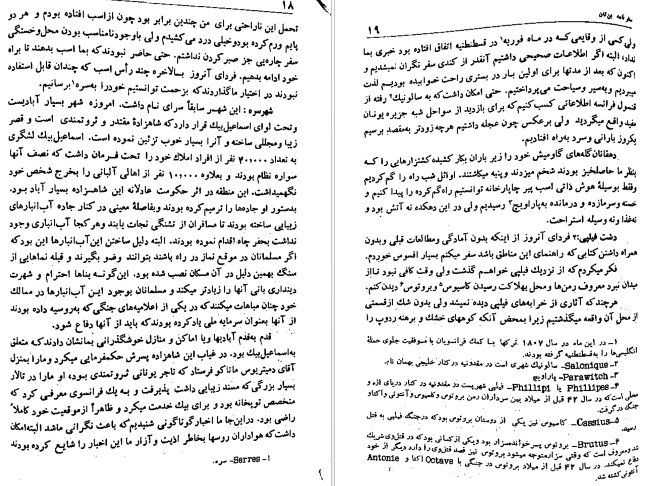 ۱۸
تحمل این ناراحتی برای من چندین برابر بود چون از اسب افتاده بودم و هر دو
پایم ورم کرده بود و خیلی درد می‌کشیدم ولی باوجود نامناسب بودن محل وخستگی
سفر چاره‌یی جز صبر کردن نداشتم. حتی حاضر نبودند که بما اسب بدهند تا براه
خود ادامه بدهیم. فردای آنروز بالاخره چند رأس اسب که چندان قابل استفاده
نبودند در اختیار ما گذاردند که بزحمت توانستیم خود را بسره۱ برسانیم.
شهر سره: این شهر سابقاً سرای نام داشت. امروزه شهر بسیار آبادیست
وتحت لوای اسماعیل‌بیك قرار دارد که شاهزادۀ مقتدر و ثروتمندی است و قصر
زیبا ومجللی ساخته و آنرا بسیار خوب تزئین نموده است. اسماعیل‌بیك لشگری
به تعداد ۴۰۰۰۰۰ نفر از افراد املاك خود را تحت فرمان داشت که نصف آنها
سواره نظام بودند و بعلاوه ۱۰۰۰۰ نفر از اهالی آلبانی را بخرج شخص خود
نگهمیداشت. این منطقه در اثر حکومت عادلانه این شاهزاده بسیار آباد بود.
بدستور او جاده‌ها را ترمیم کرده بودند وبفاصلۀ معینی در کنار جاده آب‌انبارهای
زیبایی ساخته بودند تا مسافران از تشنگی نجات یابند وهر کجا آب‌انباری وجود
نداشت بحفر چاه اقدام نموده بودند. البته دلیل ساختن این‌آب‌انبارها این بود که
اگر مسلمانان در موقع نماز در راه باشند بتوانند وضو بگیرند و قبله نماهایی از
سنگ بهمین دلیل در آن مکان نصب شده بود. این‌گونه بناها احترام و شهرت
دینداری بانی آنها را زیادتر میکند و مسلمانان بوجود این آب‌انبارها در ممالك
خود چنان مباهات میکنند که در یکی از اعلامیه‌های جنگی که بروسیه داده بودند
از آنها بعنوان سرمایه ملی یاد کرده بودند که باید از آنها دفاع شود.
قدم به‌قدم آبادیها ویا اماکن و منازل خوشگذرانی بمانشان دادند که متعلق
به‌اسماعیل‌بیك بود. در غیاب این شاهزاده پسرش حکمفرمایی میکرد و ما را بمنزل
آقای دمیتریوس ماناکو فرستاد که تاجر یونانی ثروتمندی بود، او ما را در تالار
بسیار بزرگی که مسند زیبایی داشت پذیرفت و به‌یك فرانسوی معرفی کرد که
متخصص توپخانه بود و برای بیك خدمت میکرد و ظاهراً از موقعیت خود کاملا
راضی بود. دراین‌جا ما اخبار گوناگونی شنیدیم که باعث نگرانی ماشد البته‌امکان
داشت که هواداران روسها بخاطر اذیت وآزار ما این اخبار را شایع کرده بودند
۱- Serres- سره.
۱۹
ولی کسی از وقایعی که در ماه فوریه۱ در قسطنطنیه اتفاق افتاده بود خبری بما
نداد؛ البته اگر اطلاعات صحیحی داشتیم آنقدر از کندی سفر نگران نمیشدیم و
اکنون که بعد از مدتها برای اولین بار در بستری راحت خوابیده بودیم لذت
میبردیم وبه‌سیر وسیاحت می‌پرداختیم. حتی امکان داشت که به سالونیك۲ رفته از
قنسول فرانسه اطلاعاتی کسب کنیم که برای بازدید از سواحل شبه جزیره یونان
مفید واقع میگردید ولی برعکس چون عجله داشتیم هرچه زودتر به‌مقصد برسیم
یکروز بارانی وسرد به‌راه افتادیم.
دهقانان‌گله‌های گاومیش خود را زیر باران بکار کشیده کشتزارهایی را کـه
بنظر ما حاصلخیز بودند شخم میزدند وپنبه میکاشتند. اوائل شب راه را گم‌کردیم
وفقط بوسیلۀ هوش ذاتی اسب پیر چاپارخانه توانستیم راه‌گم‌کرده را پیدا کنیم و
خسته وسرمازده و درمانده به‌پاراویچ۳ رسیدیم ولی در این دهکده نه آتش بود و
نه‌غذا ونه وسیله استراحت.
دشت فیلیپی:۴ فردای آنروز از اینکه بدون آمادگی ومطالعات قبلی وبدون
همراه داشتن کتابی که راهنمای این مناطق باشد سفر میکنم بسیار افسوس خوردم.
فکر میکردم که از نزدیك فیلیپی خواهـم گذشت ولی وقت کافی نبود تـا از
میدان نبرد معروف رمن‌ها و محل بهلاکت رسیدن کاسیوس۵ و بروتوس۶ دیدن‌کنم.
هرچند که آثاری از خرابه‌های فیلیپی دیده نمیشد ولی بدون شك ازقسمتی
از محل آن واقعه میگذشتیم زیرا بمحض آنکه کوههای خشك و برهنه ردوپ را
۱- در این ماه در سال ۱۸۰۷ ترکها با کمك فرانسویان با موفقیت جلوی حملۀ
انگلیس‌ها را به‌قسطنطنیه گرفته بودند.
۲- Salonique- سالونیك شهری است در مقدونیه در کنار خلیجی بهمان نام.
۳- Parawitch- پاراویچ
۴- Phillipes یا Phillipi- فیلیپی شهریست در مقدونیه در کنار دریای اژه و
محلی است که در سال ۴۲ قبل از میلاد بین سرداران رمن بروتوس وکاسیوس و آنتونی واکتاو
جنگ درگرفت.
۵- Cassius- کاسیوس نیز یکی از دوستان بروتوس بود که درجنگ فیلیپی به قتل
رسید.
۶- Brutus- بروتوس پسرخوانده‌سزار بود ویکی ازکسانی بود که در قتل وی شریك
شد ومعروف است که وقتی سزار متوجه میشود بروتوس نیز قصد قتل وی را دارد دیگر از خود
دفاع نمیکند. در سال ۴۲ قبل از میلاد بروتوس در جنگی با Octave اکتاو و Antonie
آنتونی کشته شد.